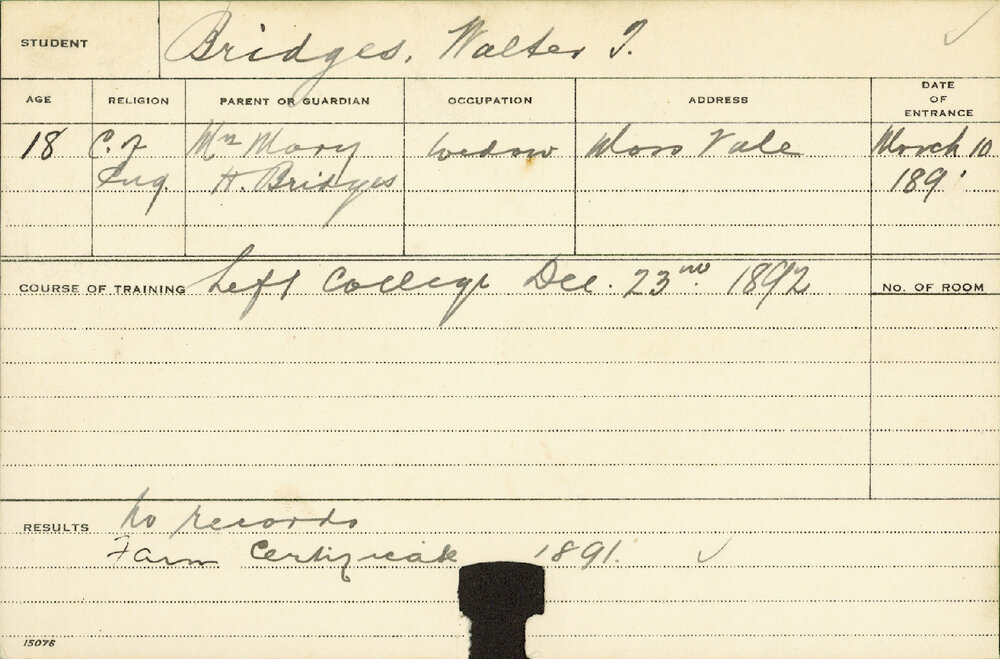 STUDENT Bridges, Walter T. ✓
AGE RELIGION PARENT OR GUARDIAN OCCUPATION ADDRESS DATE OF ENTRANCE
18 C. of Mrs Mary Widow Moss Vale March 10
Eng H. Bridges 189
COURSE OF TRAINING Left College Dec. 23rd 1892 No. OF ROOM
RESULTS No records
Farm Certificate 1891. ✓
15076